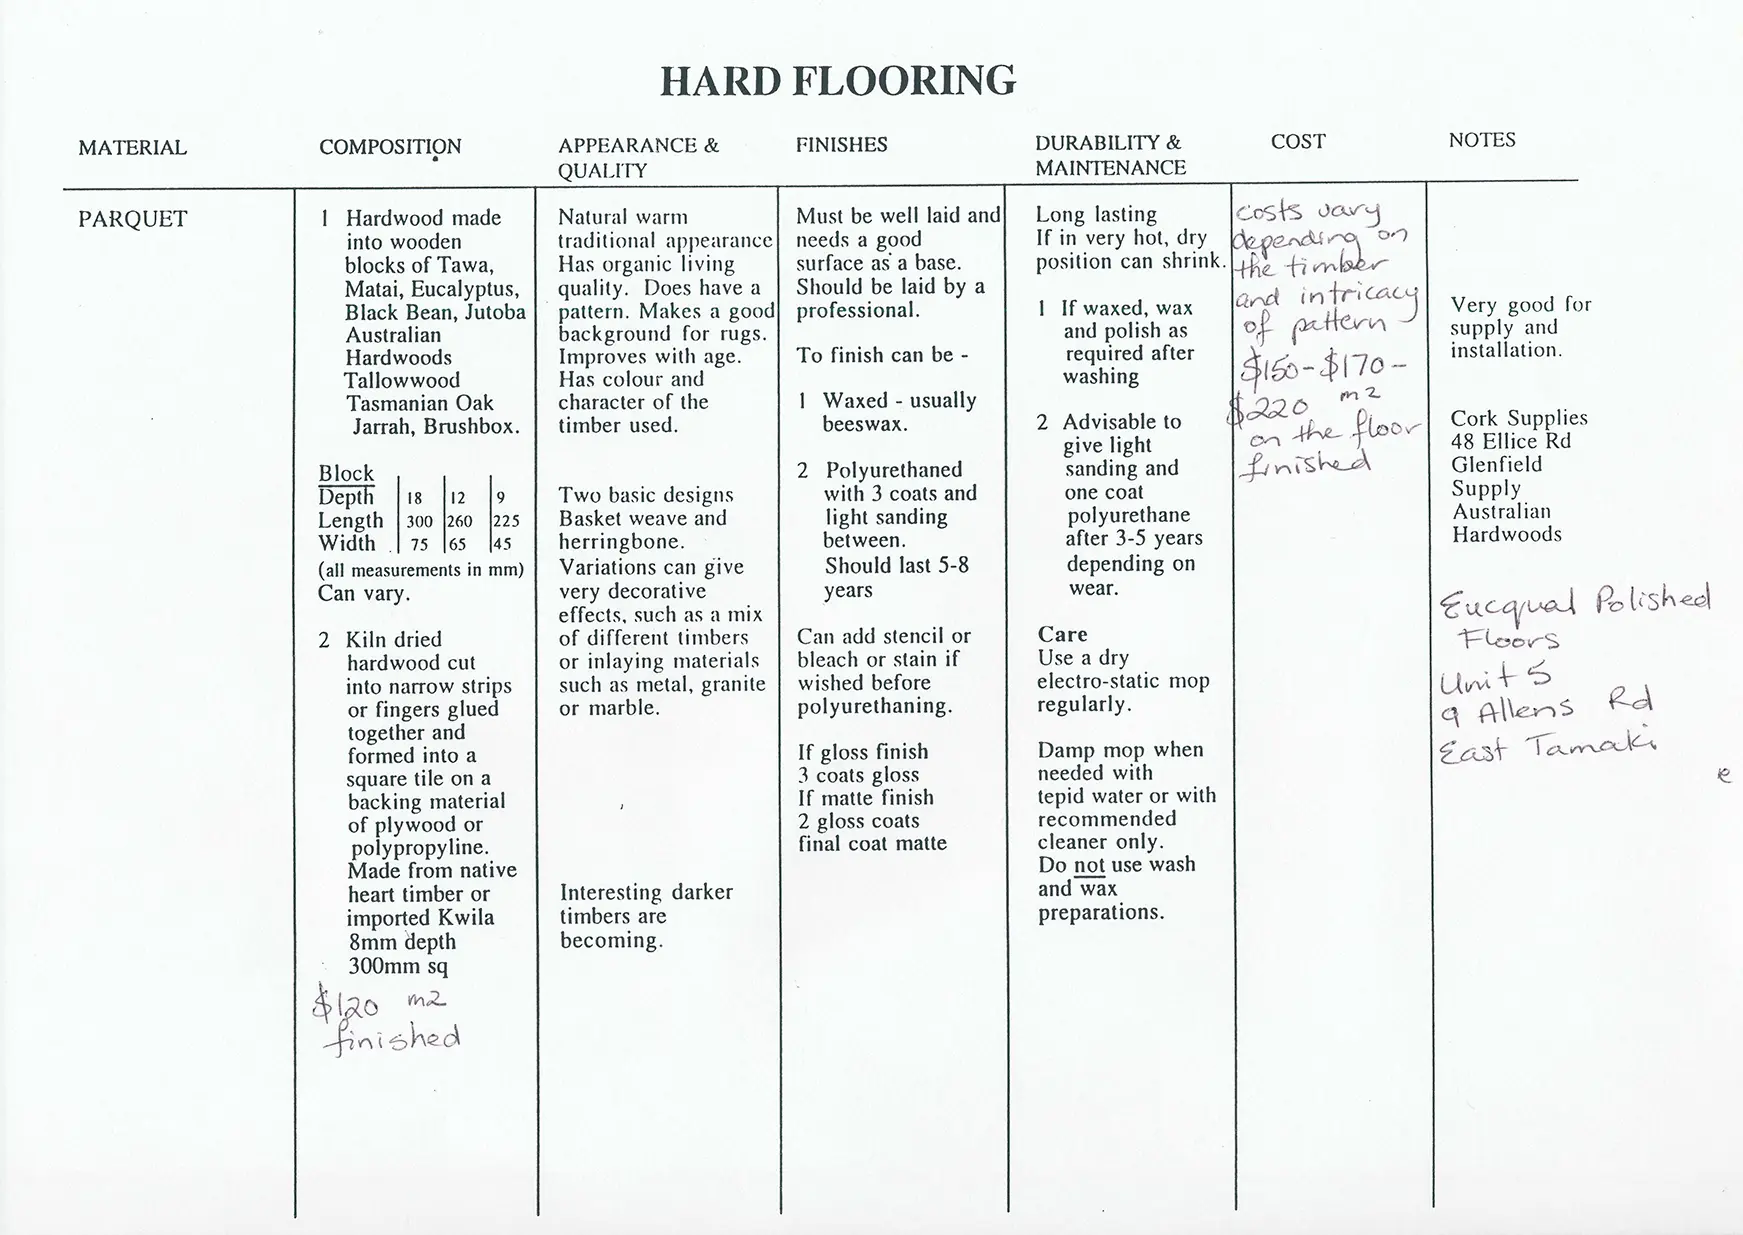 HARD FLOORING
MATERIAL
COMPOSITION
APPEARANCE &
QUALITY
FINISHES
DURABILITY &
MAINTENANCE
COST
NOTES
PARQUET
1 Hardwood made
into wooden
blocks of Tawa,
Matai, Eucalyptus,
Black Bean, Jutoba
Australian
Hardwoods
Tallowwood
Tasmanian Oak
Jarrah, Brushbox.
Block
Depth 18 12 9
Length 300 260 225
Width 75 65 45
(all measurements in mm)
Can vary.
2 Kiln dried
hardwood cut
into narrow strips
or fingers glued
together and
formed into a
square tile on a
backing material
of plywood or
polypropyline.
Made from native
heart timber or
imported Kwila
8mm depth
300mm sq
$120 m2
finished
Natural warm
traditional appearance
Has organic living
quality. Does have a
pattern. Makes a good
background for rugs.
Improves with age.
Has colour and
character of the
timber used.
Two basic designs
Basket weave and
herringbone.
Variations can give
very decorative
effects, such as a mix
of different timbers
or inlaying materials
such as metal, granite
or marble.
Interesting darker
timbers are
becoming.
Must be well laid and
needs a good
surface as a base.
Should be laid by a
professional.
To finish can be -
1 Waxed - usually
beeswax.
2 Polyurethaned
with 3 coats and
light sanding
between.
Should last 5-8
years
Can add stencil or
bleach or stain if
wished before
polyurethaning.
If gloss finish
3 coats gloss
If matte finish
2 gloss coats
final coat matte
Long lasting
If in very hot, dry
position can shrink.
1 If waxed, wax
and polish as
required after
washing
2 Advisable to
give light
sanding and
one coat
polyurethane
after 3-5 years
depending on
wear.
Care
Use a dry
electro-static mop
regularly.
Damp mop when
needed with
tepid water or with
recommended
cleaner only.
Do not use wash
and wax
preparations.
costs vary
depending on
the timber
and intricacy
of pattern
$150-$170-
$220 m2
on the floor
finished
Very good for
supply and
installation.
Cork Supplies
48 Ellice Rd
Glenfield
Supply
Australian
Hardwoods
Eucqual Polished
Floors
Unit 5
9 Allens Rd
East Tamaki
e